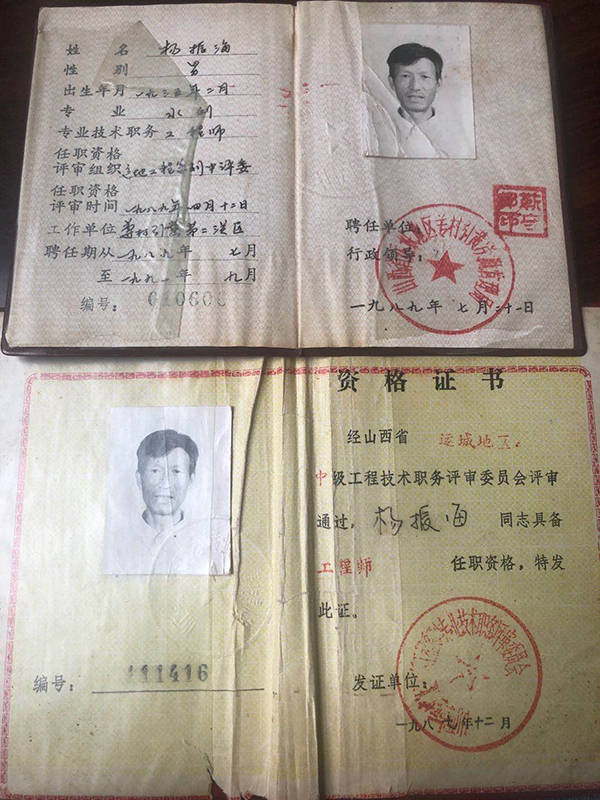 姓名 杨振海
性别 男
出生年月 一九三五年二月
专业 水利
专业技术职务 工程师
任职资格
评审组织 运地工程系列中评委
任职资格
评审时间 一九八九年四月十二日
工作单位 尊村引黄第二灌区
聘任期从一九八九年 七月
至一九九一年 九月
编号:
聘任单位:
行政领导:
一九八九年 七月二十一日
资格证书
经山西省 运城地区
中级工程技术职务评审委员会评审
通过, 杨振海 同志具备
工程师 任职资格,特发
此证。
编号: 111416
发证单位:
一九八七年十二月